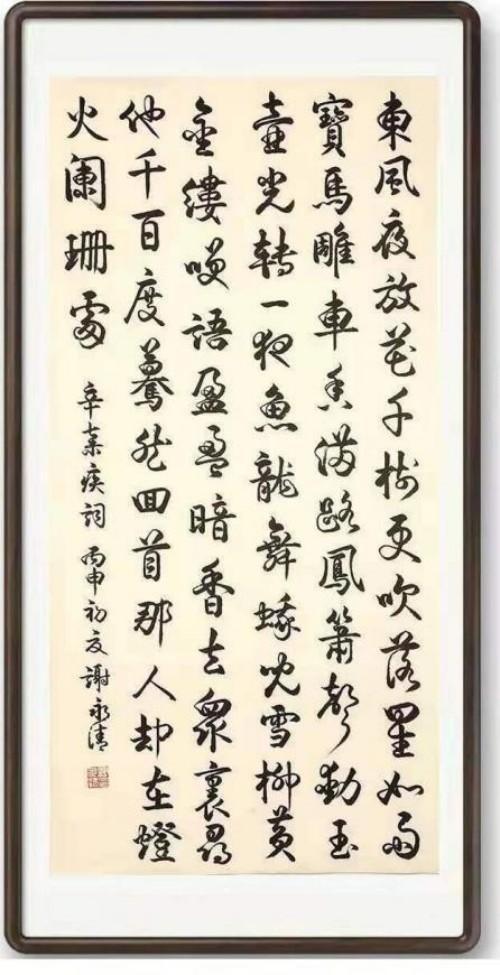 東風夜放花千樹更吹落星如雨
寶馬雕車香滿路鳳簫聲動玉
壺光轉一夜魚龍舞蛾兒雪柳黃
金縷咲語盈盈暗香去眾裏尋
他千百度驀然回首那人却在燈
火闌珊處
辛棄疾詞 丙申初夏 謝永清